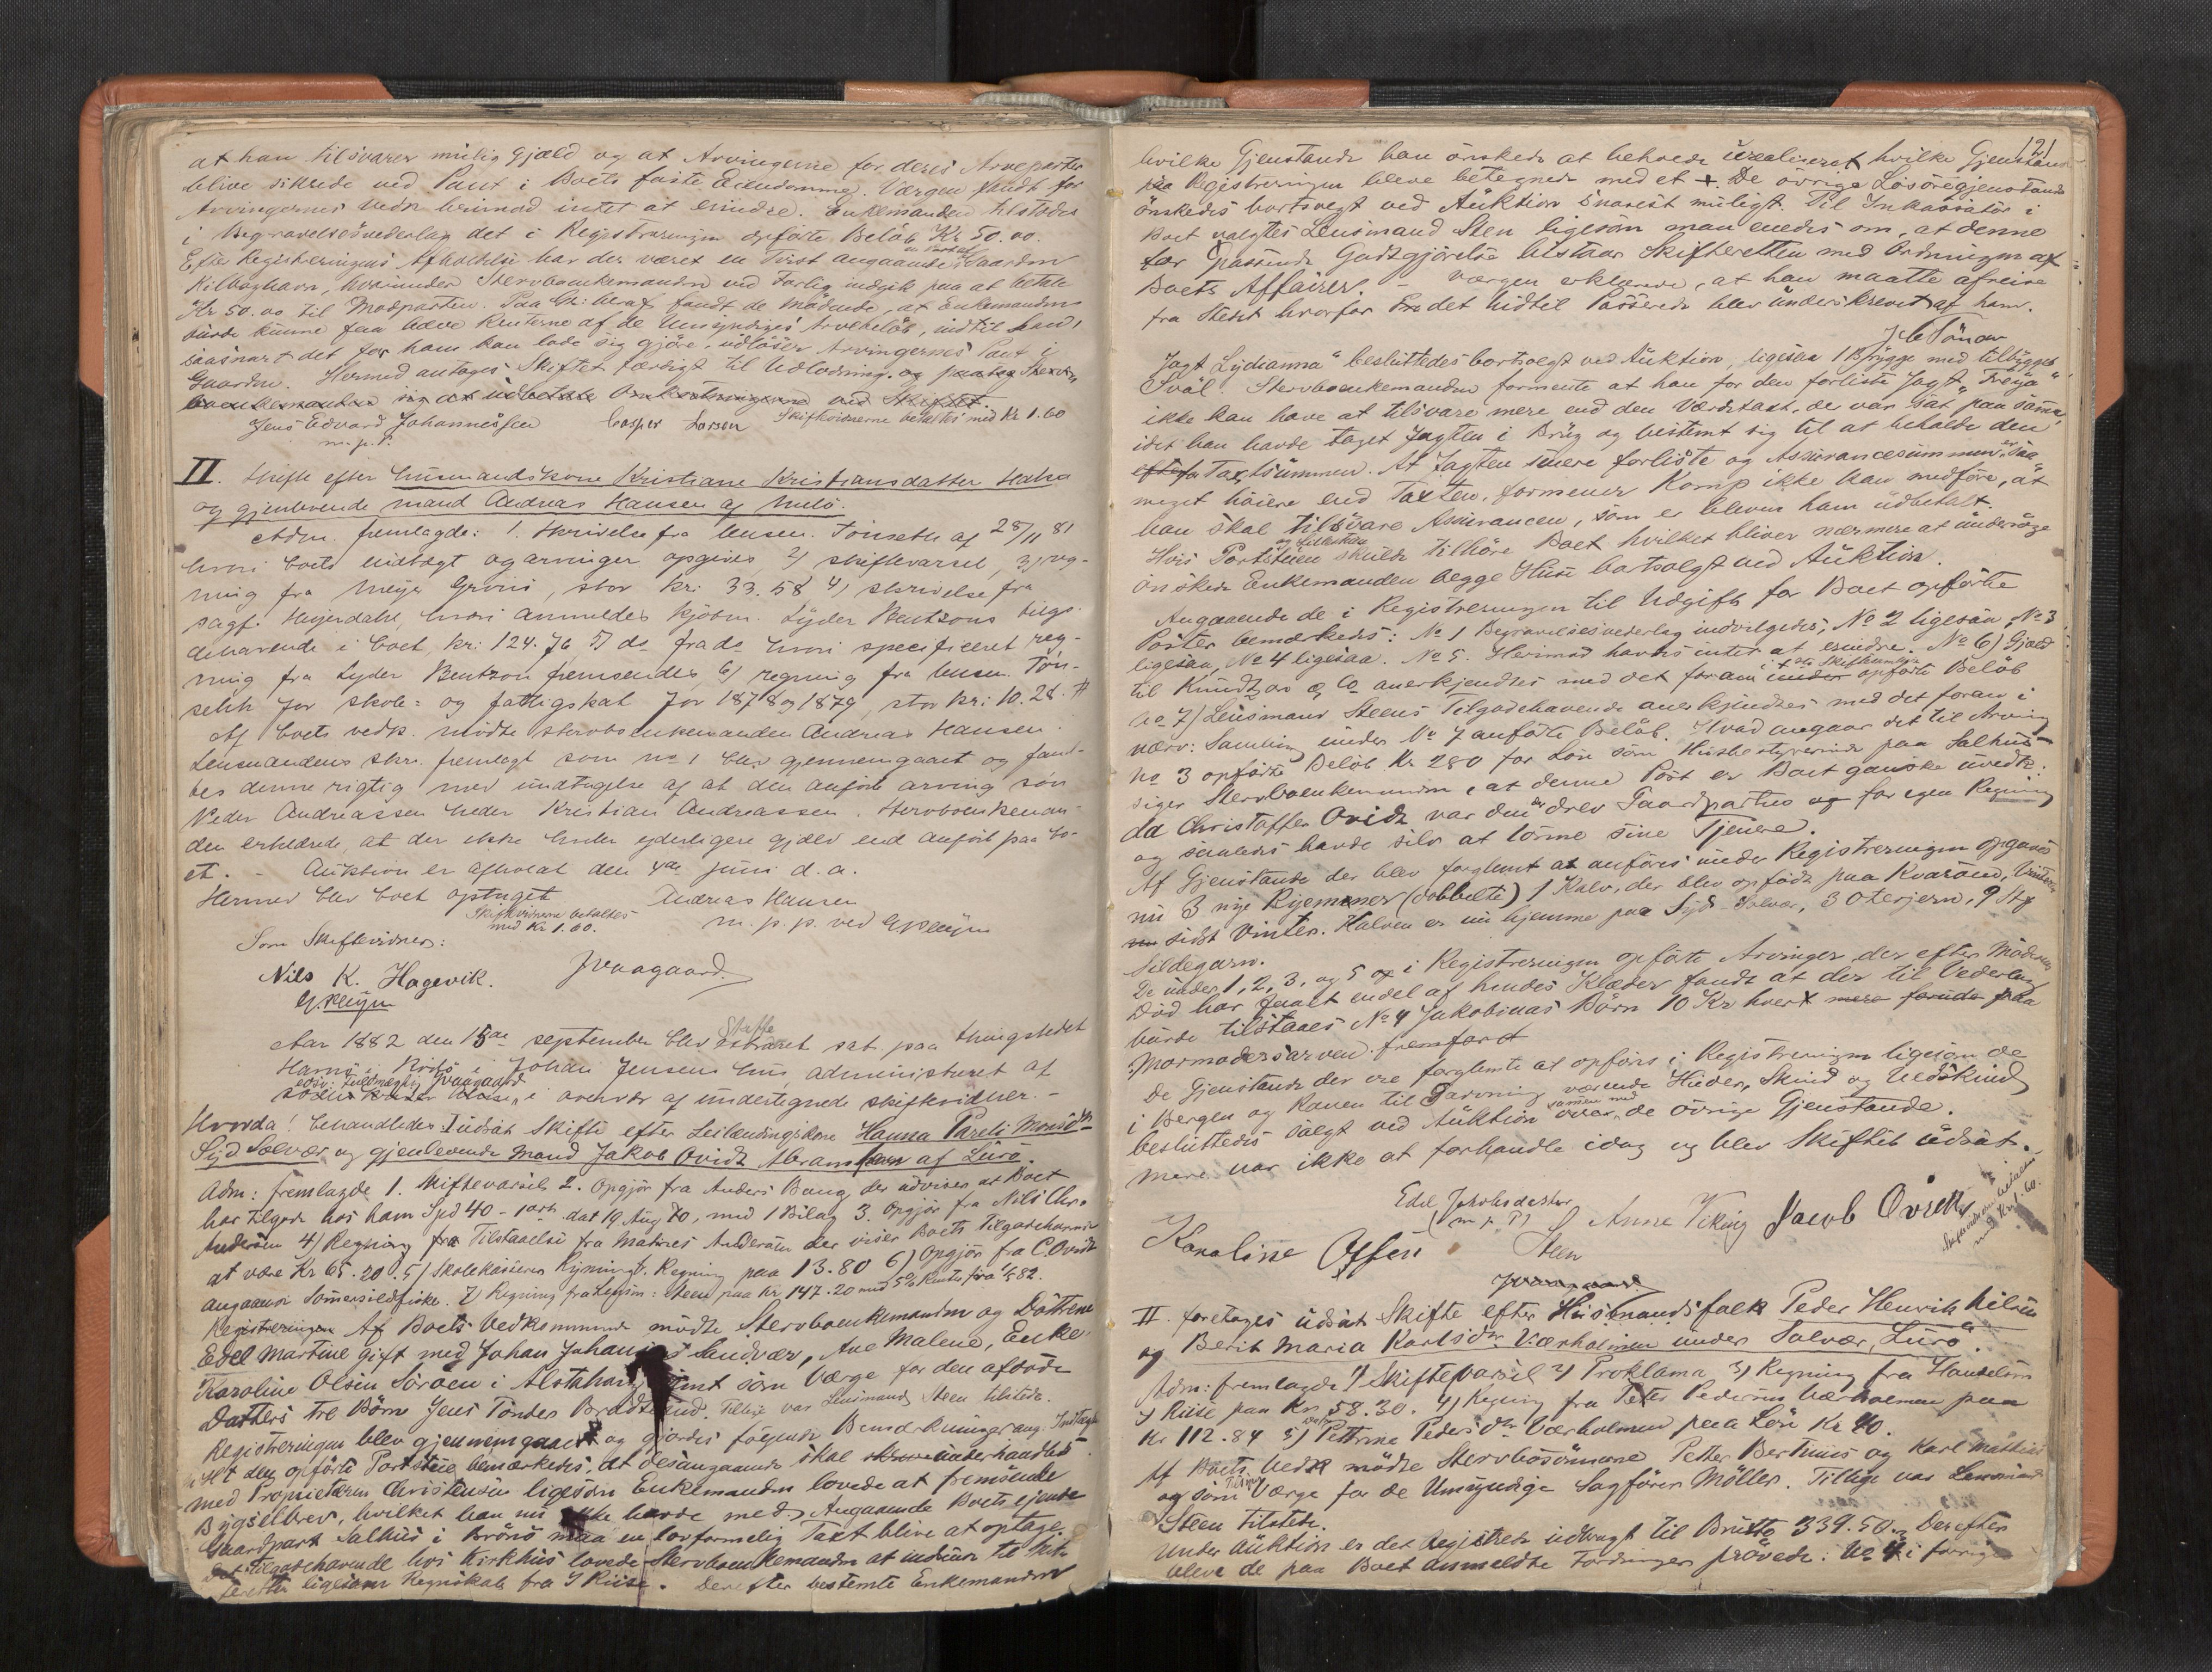 at han tilsvarer mulig Gjæld og at Arvingerne for deres Arveparter
blive sikrede ved Pant i Boets faste Eiendomme. Værgen fandt for
Arvingernes Vedk. herimod intet at erindre. Enkemanden tilstodes
i Begravelsesvederlag det i Registreringen opførte Beløb Kr 50.00.
Efter Registreringens Afholdelse har der været en Tvist angaaende Gaarden
Kilboghavn, hvorunder Stervboenkemanden ved Forlig indgik paa at betale
Kr 50.00 til Modparten. Paa Gr: heraf fandt de Mødende, at Enkemanden
burde kunne faa hæve Renterne af de Umyndiges Arvebeløb, indtil han,
saasnart det for ham kan lade sig gjøre, udløser Arvingernes Pant i
Gaarden. Hermed antages Skiftet færdigt til Udlodning. og paatog Sterv-
boenkemanden sig at udbetale Omkostningerne ved Skiftet.
Jens Edvard Johannessen Casper Larsen Skiftevidnerne betaltes med Kr 1.60
m. p. P.
II. Skifte efter husmandskone Kristiane Kristiansdatter
og gjenlevende mand Andreas Hansen af
Adm. fremlagde: 1. Skrivelse fra lensm. Tønseth af 28/11 81
hvori boets indbragt og arvinger opgives, 2) skiftevarsel, 3) reg-
ning fra Meyer Grønis, stor kr: 33.58 4) skrivelse fra
sagf. Heyerdahl, hvori anmeldes kjøbm. Lyder Bentzons tilgo-
dehavende i boet, kr: 124.76 5) do fra do hvori specificeret reg-
ning fra Lyder Bentzon fremsendes, 6) regning fra lensm. Tøn-
seth for skole- og fattigskat for 1878 og 1879, stor kr: 10.28. #
Af boets vedk. mødte stervboenkemanden Andreas Hansen.
Lensmandens skr. fremlagt som no 1 blev gjennemgaaet og fand-
tes denne rigtig med undtagelse af at den anførte arving søn
Peder Andreassen heder Kristian Andreassen. Stervboenkeman-
den erklærede, at der ikke hviler yderligere gjæld end anført paa bo-
et. - Auktion er afholdt den 4de juni d. a.
Hermed blev boet optaget Andreas Hansen
Skiftevidnerne betaltes m. p. p. ved
med Kr 1.60.
Som Skiftevidner:
Nils K. Hagevik. Jvaagaard.
Aar 1882 den 15de september blev Skifte sat paa thingstedet
i Johan Jensens hus, administreret af
edsv: Fuldmægtig Jvaagaard
i overvær af undertegnede skiftevidner. -
Hvorda! behandledes I udsat Skifte efter Leilændingskone Hanna Pareli Monsdtr
Syd Solvær og gjenlevende Mand Jakob Ovidt Abramsen af Lurø.
Adm: fremlagde 1. Skiftevarsel 2. Opgjør fra Anders Bang, der udviser at Boet
har tilgode hos ham Spd 40 - 1 ort dat 19 Aug 80, med 1 Bilag 3. Opgjør fra Nils Chr.
Andersen 4) Regning fra Tilstaaelse fra Matines Andersen der viser Boets Tilgodehavende
at være Kr 65.20. 5) Skolekasserer Regning paa 13.80 6) Opgjør fra C. Ovidt
angaaende Sommersildfiske. 7) Regning fra Lensm: Steen paa Kr 147.20 med 5% Rente fra 82.
Registreringen Af Boets Vedkommende mødte Stervboenkemanden og Døtrene
Edel Martine gift med Johan Sandvær, Ane Malene, Enke,
Karoline Olsen som Værge for den afdøde
Datters tre Børn Jens Tønder Tillige var Lensmand Steen tilstede.
Registreringen blev gjennemgaaet og gjordes følgende Bemærkninger ang. Indtægt
Ved den opførte Portstue bemærkedes, at desangaaende skal underhandles
med Proprietæren Christensen ligesom Enkemanden lovede at fremsende
Bygselbrev, hvilket han nu ikke havde med. Angaaende Boets eiende
Gaardpart Salhus i Brønø maa en lovformelig Taxt blive at optage.
Det Tilgodehavende hos Kirkhus lovede Stervboenkemanden at
ligesom Regnskab fra J Riise. Derefter bestemte Enkemanden
121
hvilke Gjenstande han ønskede at beholde urealiseret hvilke Gjenstande
paa Registreringen bleve betegnede med et +. De øvrige Løsøregjenstande
ønskedes bortsolgt ved Auktion snarest muligt. Til Inkassator i
Boet valgtes Lensmand Sten ligesom man enedes om, at denne
for passende Godtgjørelse bistaar Skifteretten med Ordningen af
Boets Affairer. - Værgen erklærede, at han maatte afreise
fra Stedet hvorfor det hidtil Passerede blev underskrevet af ham.
J. C. Tønder
Jagt "Lydianna" besluttedes bortsolgt ved Auktion, ligesaa 1 Brygge med tilbygget
Sval. Stervboenkemanden formente at han for den forliste Jagt "Freya"
ikke kan have at tilsvare mere end den Værditaxt, der var sat paa samme,
idet han havde taget Jagten i Brug og bestemt sig til at beholde den
for Taxtsummen. At Jagten senere forliste og Assurancesummen er saa
meget høiere end Taxten, formener Komp ikke kan medføre, at
han skal tilsvare Assurancen, som er bleven ham udbetalt.
Hvis Portstuen skulde tilhøre Boet hvilket bliver nærmere at undersøge
ønskede Enkemanden begge Huse bortsolgt ved Auktion.
Angaaende de i Registreringen til Udgift for Boet opførte
Poster bemærkedes: No 1 Begravelsesvederlag indvilgedes, No 2 ligesaa, No 3
ligesaa, No 4 ligesaa. No 5. Herimod havdes intet at erindre. No 6) Gjæld
til Knudtzon & Co anerkjendtes med det foran i opførte Beløb
No 7) Lensmand Steens Tilgodehavende anerkjendtes med det foran i
nærv: Samling under No 7 anførte Beløb. Hvad angaar det til Arving
No 3 opførte Beløb Kr 280 for Løn som Husbestyrerinde paa Salhus
siger Stervboenkemanden, at denne Post er Boet ganske uvedk:
da Christoffer Ovidt var den der drev Gaardparten for egen Regning
og saaledes havde selv at lønne sine Tjenere.
Af Gjenstande der blev forglemt at anføres under Registreringen opgaves
nu 3 nye Ryemmer (dobbelte) 1 Kalv, der blev opfødt paa Kvarøen, Vinteren
sidst Vinter. Kalven er nu hjemme paa Syd-Solvær, 3 Oterjern, 9 Stk
Sildegarn.
De under 1, 2, 3, og 5 i Registreringen opførte Arvinger der efter Moderens
Død har faaet endel af hendes Klæder fandt at der til Vederlag
burde tilstaaes No 4 Jakobinas Børn 10 Kr hver mere forud paa
Mormodersarven.
De Gjenstande der ere forglemte at opføres i Registreringen ligesom de
i Bergen og Ranen til Garvning værende Huder, Skind og Uldskind
besluttedes solgt ved Auktion sammen med de øvrige Gjenstande.
Mere var ikke at forhandle idag og blev Skiftet udsat.
Edel Jakobsdatter
(m p P) Anne Viking Jacob Ovidt
Karoline Olsen Steen
Jvaagaard.
II. foretages udsat Skifte efter Husmandsfolk Peder Henrik Nilsen
og Berit Maria Karlsdtr Værholmen under Solvær, Lurø.
Adm: fremlagde 1) Skiftevarsel 2) Proklama 3) Regning fra Handelsm
J Riise paa Kr 58.30. 4) Regning fra Peter Pedersen Værholmen paa
Kr 112.84 5) Petrine Pedersdtr Værholmen paa Løn Kr 40.
Af Boets Vedk mødte Stervbosønnerne Petter Bertinus og Karl Mathias
og som Værge for de Umyndige Sagfører Møller. Tillige var Lensmand
Steen tilstede.
Under Auktion er det Registrerede indbragt til Brutto 339.50. Derefter
bleve de paa Boet anmeldte Fordringer prøvede: No 1 i forrige